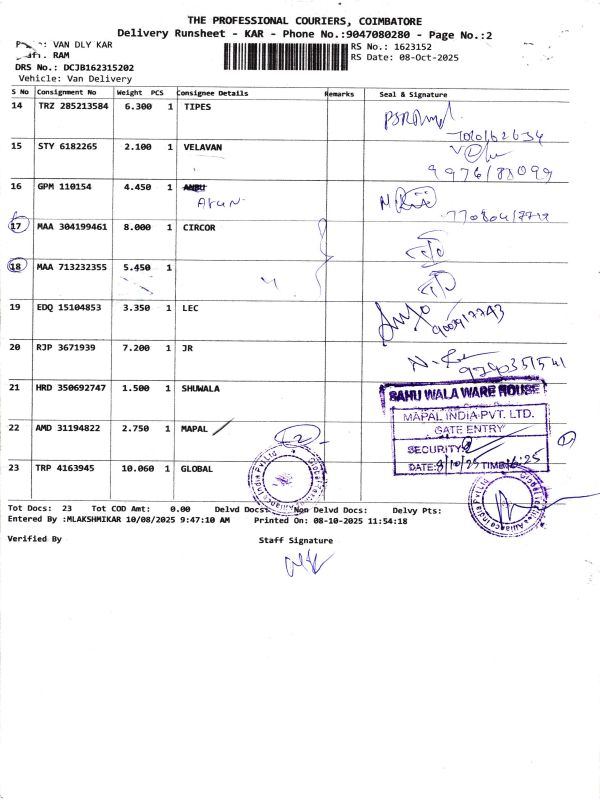 THE PROFESSIONAL COURIERS, COIMBATORE
Delivery Runsheet - KAR - Phone No.:9047080280 - Page No.:2
VAN DLY KAR
RS No.: 1623152
RAM
RS Date: 08-Oct-2025
DRS No.: DCJB162315202
Vehicle: Van Delivery
S No Consignment No Weight PCS Consignee Details Remarks Seal & Signature
14 TRZ 285213584 6.300 1 TIPES
15 STY 6182265 2.100 1 VELAVAN
16 GPM 110154 4.450 1
Arun
17 MAA 304199461 8.000 1 CIRCOR
18 MAA 713232355 5.450 1
19 EDQ 15104853 3.350 1 LEC
20 RJP 3671939 7.200 1 JR
21 HRD 350692747 1.500 1 SHUWALA
SAHU WALA WARE HOUSE
MAPAL INDIA PVT. LTD.
GATE ENTRY
SECURITY:
DATE: 8/10/25 TIME: 16:25
22 AMD 31194822 2.750 1 MAPAL
23 TRP 4163945 10.060 1 GLOBAL
Tot Docs: 23 Tot COD Amt: 0.00 Delvd Docs: Non Delvd Docs: Delvy Pts:
Entered By :MLAKSHMIKAR 10/08/2025 9:47:10 AM Printed On: 08-10-2025 11:54:18
Verified By Staff Signature